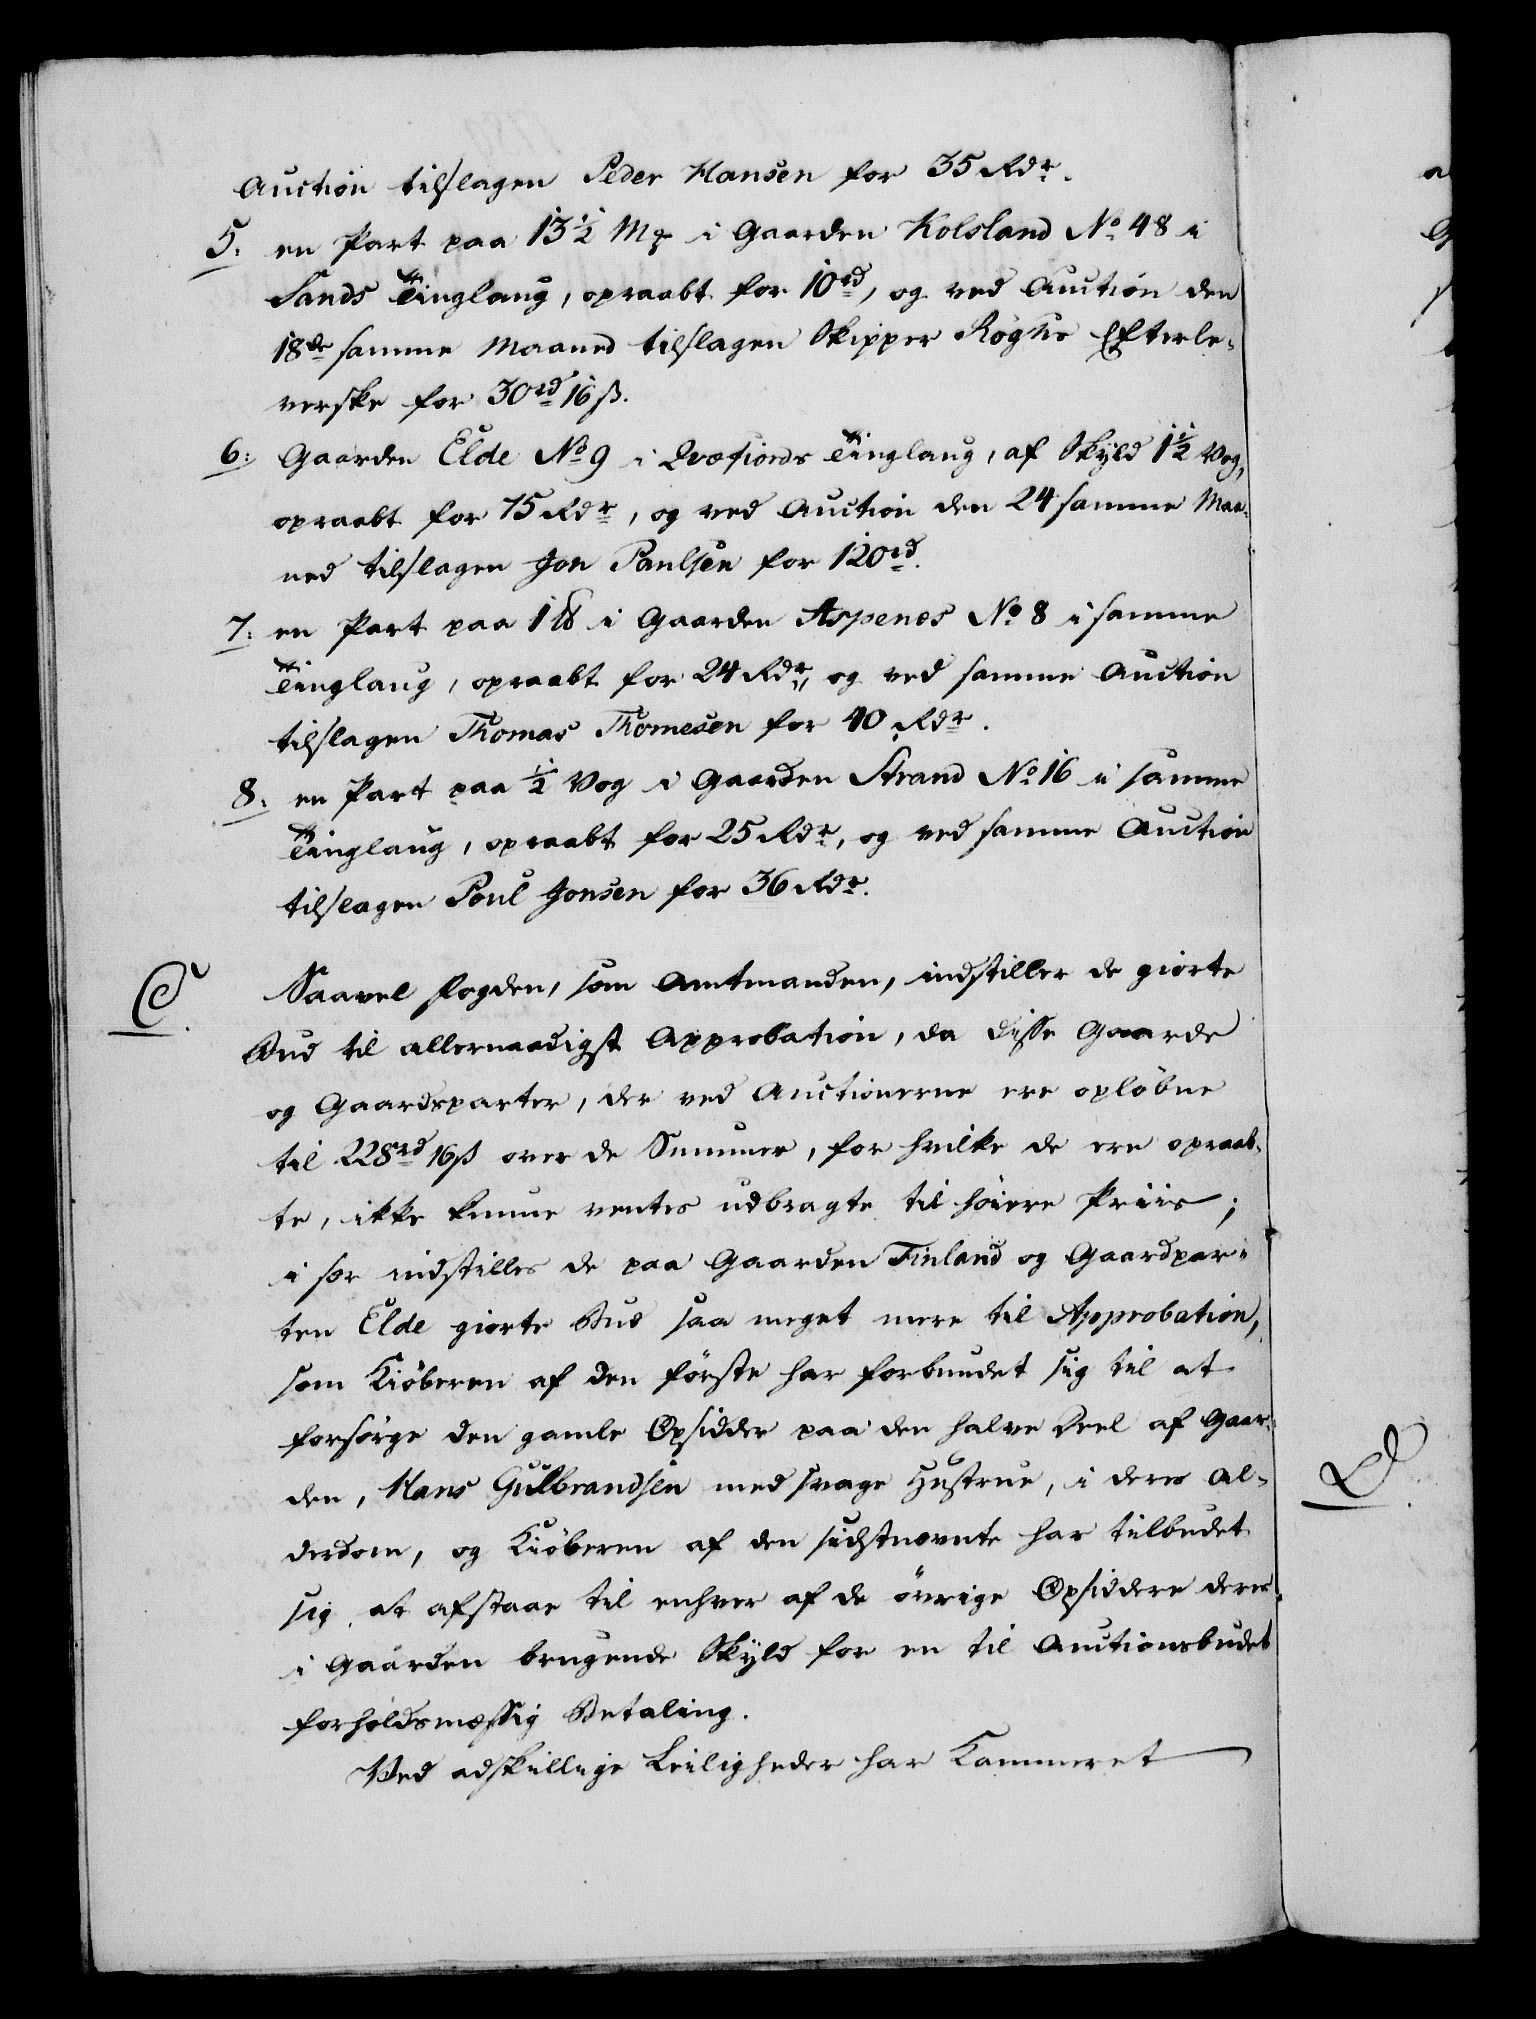 Auction tilslagen Peder Hansen for 35 Rdr.
5. en Part paa 13½ Mꝫ i Gaarden Kolsland No 48 i
Sands Tinglaug, opraabt for 10rd, og ved Auction den
18de samme Maaned tilslagen Skipper Røghs Efterle-
verske for 30rd 16 ß.
6. Gaarden Elde No 9 i Qvæfiords Tinglaug, af Skyld 1½ Vog,
opraabt for 75 Rdr, og ved Auction den 24 samme Maa-
ned tilslagen Jon Paulsen for 120rd.
7. en Part paa 1 ℔ i Gaarden Aspenes No 8 i samme
Tinglaug, opraabt for 24 Rdr, og ved samme Auction
tilslagen Thomas Thomesen for 40 Rdr.
8. en Part paa ½ Vog i Gaarden Strand No 16 i samme
Tinglaug, opraabt for 25 Rdr, og ved samme Auction
tilslagen Poul Jonsen for 36 Rdr.
C. Saavel Fogden, som Amtmanden, indstiller de giorte
Bud til allernaadigst Approbation, da disse Gaarde
og Gaardsparter, der ved Auctionerne ere opløbne
til 228rd 16ß over de Summer, for hvilke de ere opraab-
te, ikke kunne ventes udbragte til høiere Priis;
i sær indstilles de paa Gaarden Finland og Gaardpar-
ten Elde giorte Bud saa meget mere til Approbation,
som Kiøberen af den første har forbundet sig til at
forsørge den gamle Opsidder paa den halve Deel af Gaar-
den, Hans Gulbrandsen med svage Hustrue, i deres Al-
derdom, og Kiøberen af den sidstnævnte har tilbudet
sig at afstaae til enhver af de øvrige Opsiddere deres
i Gaarden brugende Skyld for en til Auctionsbudet
forholdsmæssig Betaling.
Ved adskillige Leiligheder har Kammeret
D.